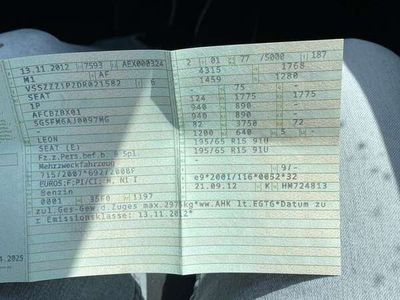 13.11.2012 7593 AEX000324
M1 AF
VSSZZZ1PZDR021582 6
SEAT
1P
AFCBZBX01
SG5FM6AJ0097MG
-
LEON
SEAT (E)
Fz.z.Pers.bef.b. 8 Spl.
Mehrzweckfahrzeug
715/2007*692/2008F
EURO5;F;PI/CI; M, N1 I
Benzin
0001 35F0 1197
zul.Ges-Gew d.Zuges max.2975kg*ww.AHK lt.EGTG*Datum zu
r Emissionsklasse: 13.11.2012*
2 01 77 /5000 187
4315 1768
1459 1280
- 75 - -
124 1775 1775
940 890 -
940 890 -
82 3750 72
1200 640 5 -
195/65 R15 91U
195/65 R15 91U
9/-
e9*2001/116*0052*32
21.09.12 K HM724813
.2025